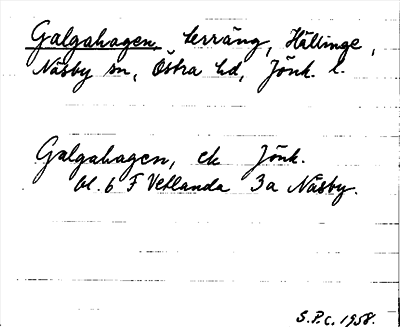 Galgahagen, terräng, Hällinge,
Näsby sn, Östra hd, Jönk. l.
Galgahagen, ek Jönk.
bl. 6 F Vetlanda 3a Näsby.
S.P.C. 1958.